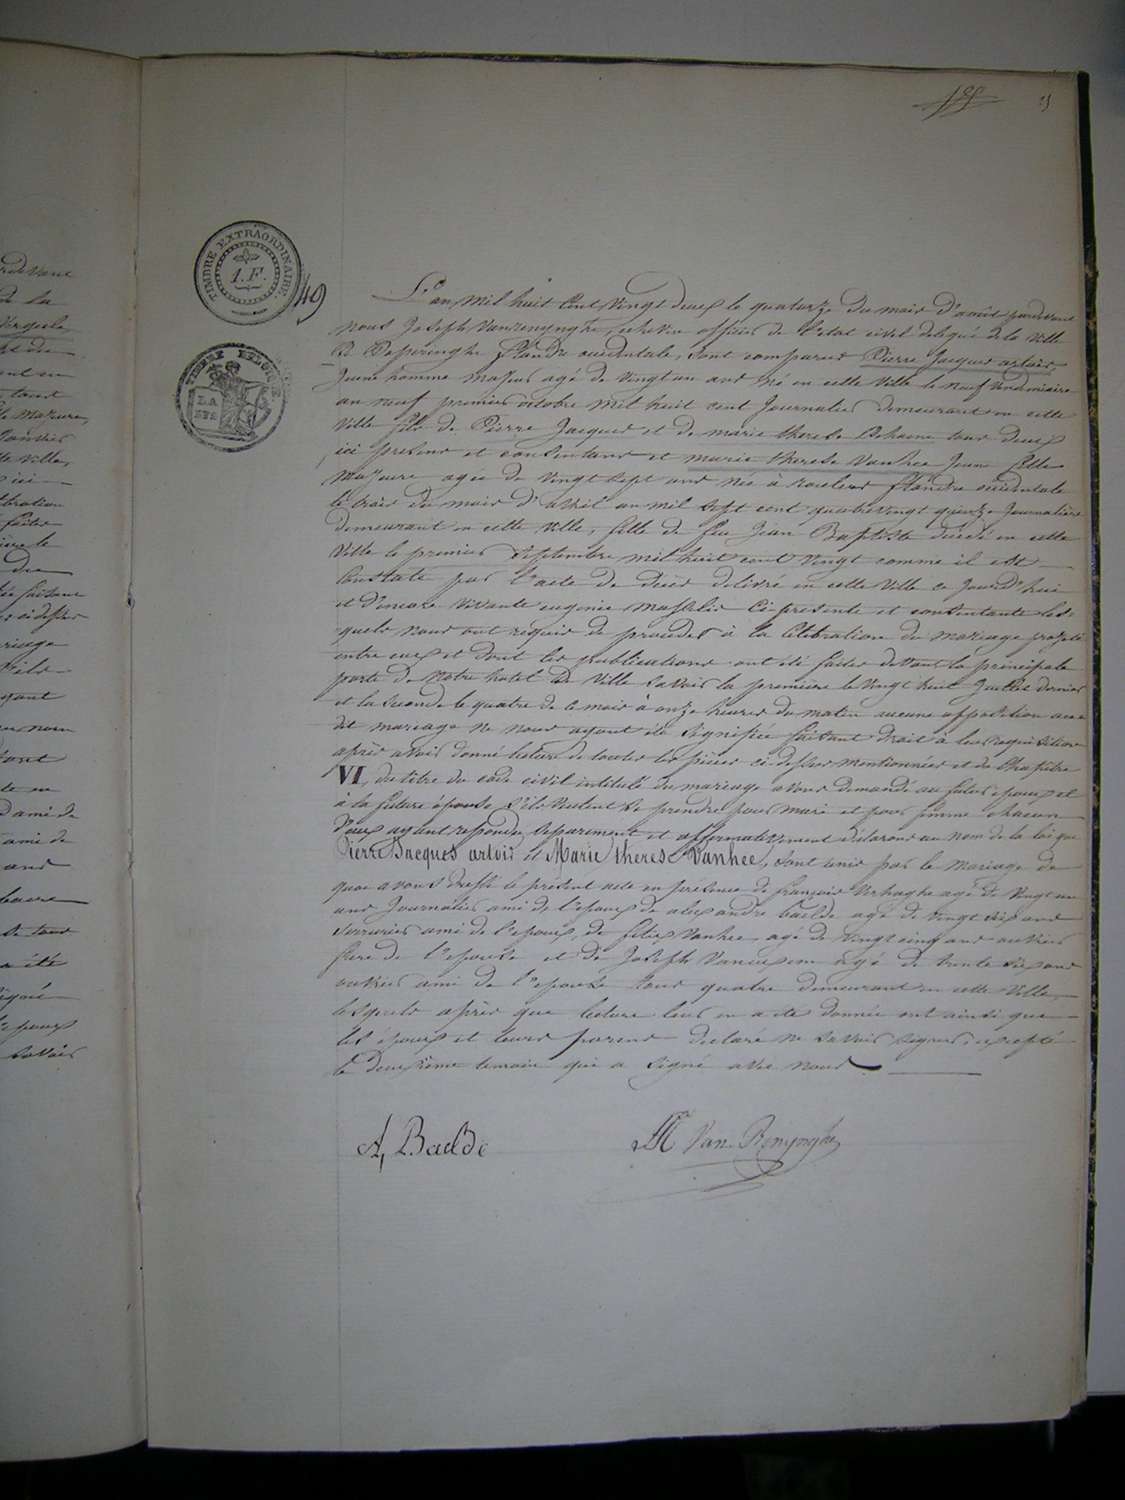 TIMBRE EXTRAORDINAIRE.
1. F.
49
TIMBRE BELGIQUE
LA
L'an mil huit Cent vingt deux le quatorze du mois d'aout pardevant
nous Joseph Vanrenynghe, echevin officier de l'etat civil delegué de la Ville
de Poperinghe flandre occidentale, sont comparus Pierre Jacques artois,
Jeune homme majeur agé de vingt un ans né en cette Ville le neuf vendemiaire
an neuf premier octobre mil huit cent Journalier demeurant en cette
Ville fils de Pierre Jacques et de marie therese Dehaene tous deux
ici presens et consentans et marie therese Vanhee Jeune fille
majeure agée de vingt sept ans née à roulers flandre occidentale
le trois du mois d'avril an mil sept cent quatrevingt quinze Journalière
demeurant en cette Ville, fille de feu Jean Baptiste decedé en cette
Ville le premier Septembre mil huit cent vingt comme il est
Constaté par l'acte de deces delivré en cette Ville ce Jourd'hui
et d'encore vivante eugenie Ci presente et consentante les-
quels nous ont requis de proceder à la Celebration du mariage projeté
entre eux et dont les publications ont été faites devant la principale
porte de Notre hotel de Ville savoir la premiere le vingt huit Juillet dernier
et la seconde le quatre de ce mois à onze heures du matin aucune opposition au
dit mariage ne nous ayant été signifiée faisant droit à leur requisition
après avoir donné lecture de toutes les pieces ci dessus mentionnées et du Chapitre
VI, du titre du code civil intitulé du mariage avons demandé au futur epoux et
à la future épouse s'ils veulent se prendre pour mari et pour femme chacun
d'eux ayant repondu separement et affirmativement declarons au nom de la loi que
Pierre Jacques artois et Marie therese Vanhee, sont unis par le mariage de
quoi avons dressé le present acte en présence de françois Verhaghe agé de vingt un
ans Journalier ami de l'epoux de alexandre baelde agé de vingt six ans
serrurier ami de l'epoux, de felix Vanhee agé de vingt cinq ans ouvrier
frere de l'epouse et de Joseph agé de trente six ans
ouvrier ami de l'epouse tous quatre demeurant en cette Ville,
lesquels après que lecture leur en a été donnée ont ainsi que
les époux et leurs parens declaré ne savoir signer, excepté
le deuxième temoin qui a signé avec nous
A, Baelde
Van Renynghe